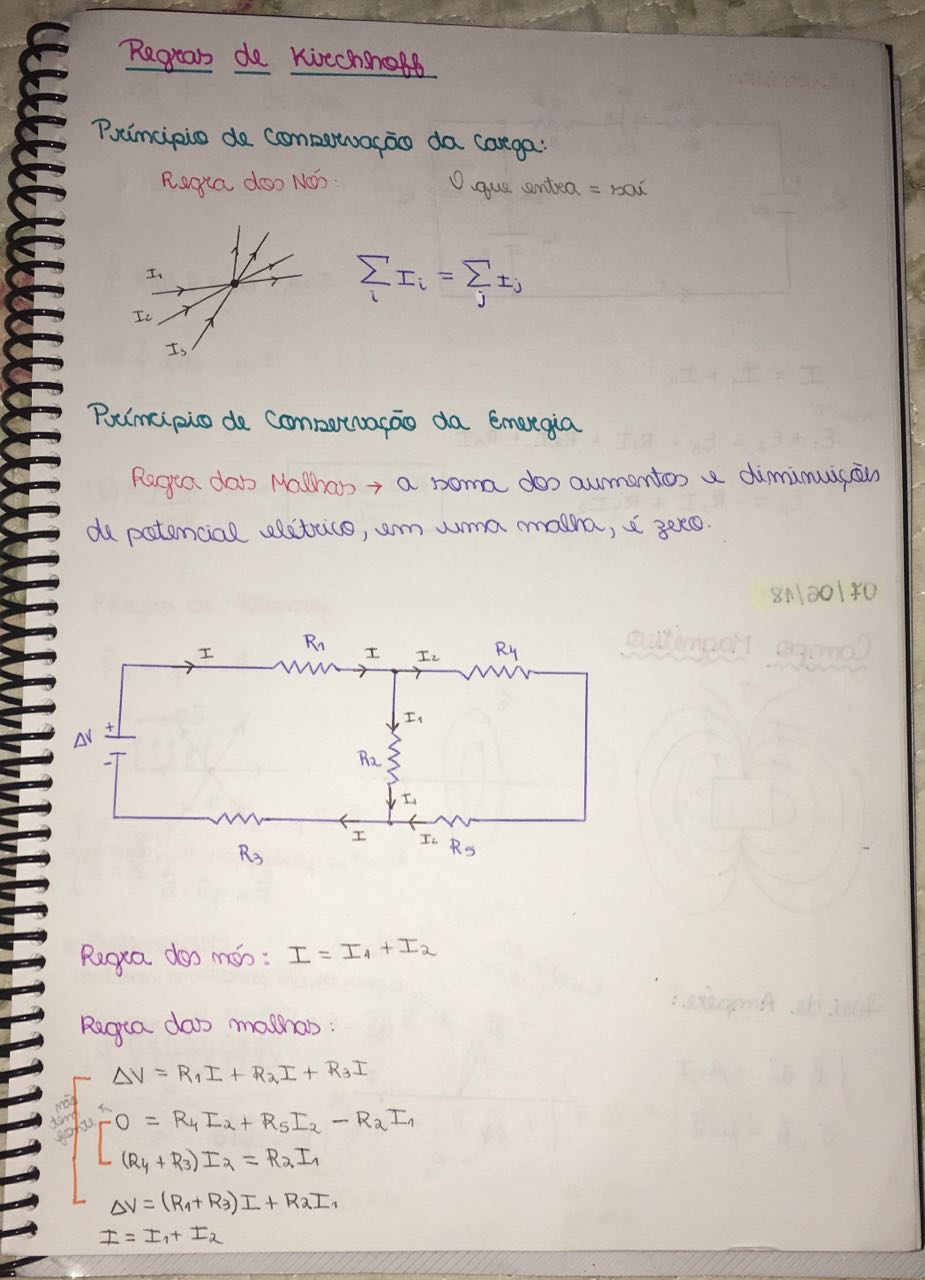 Regras de Kirchhoff
Príncipio de conservação da carga:
Regra dos Nós: O que entra = sai
I₁
I₂
I₃
∑ᵢ Iᵢ = ∑ⱼ Iⱼ
Príncipio de conservação da Energia
Regra das Malhas → a soma dos aumentos e diminuições
de potencial elétrico, em uma malha, é zero.
07/06/18
Campo Magnético
I R₁ I I₂ R₄
ΔV + - R₂ I₁
I₁
R₃ I I₂ R₅
Regra dos nós: I = I₁ + I₂
Lei de Ampère:
Regra das malhas:
ΔV = R₁I + R₂I + R₃I
não tem fonte
0 = R₄I₂ + R₅I₂ - R₂I₁
(R₄ + R₃)I₂ = R₂I₁
ΔV = (R₁+R₃)I + R₂I₁
I = I₁ + I₂